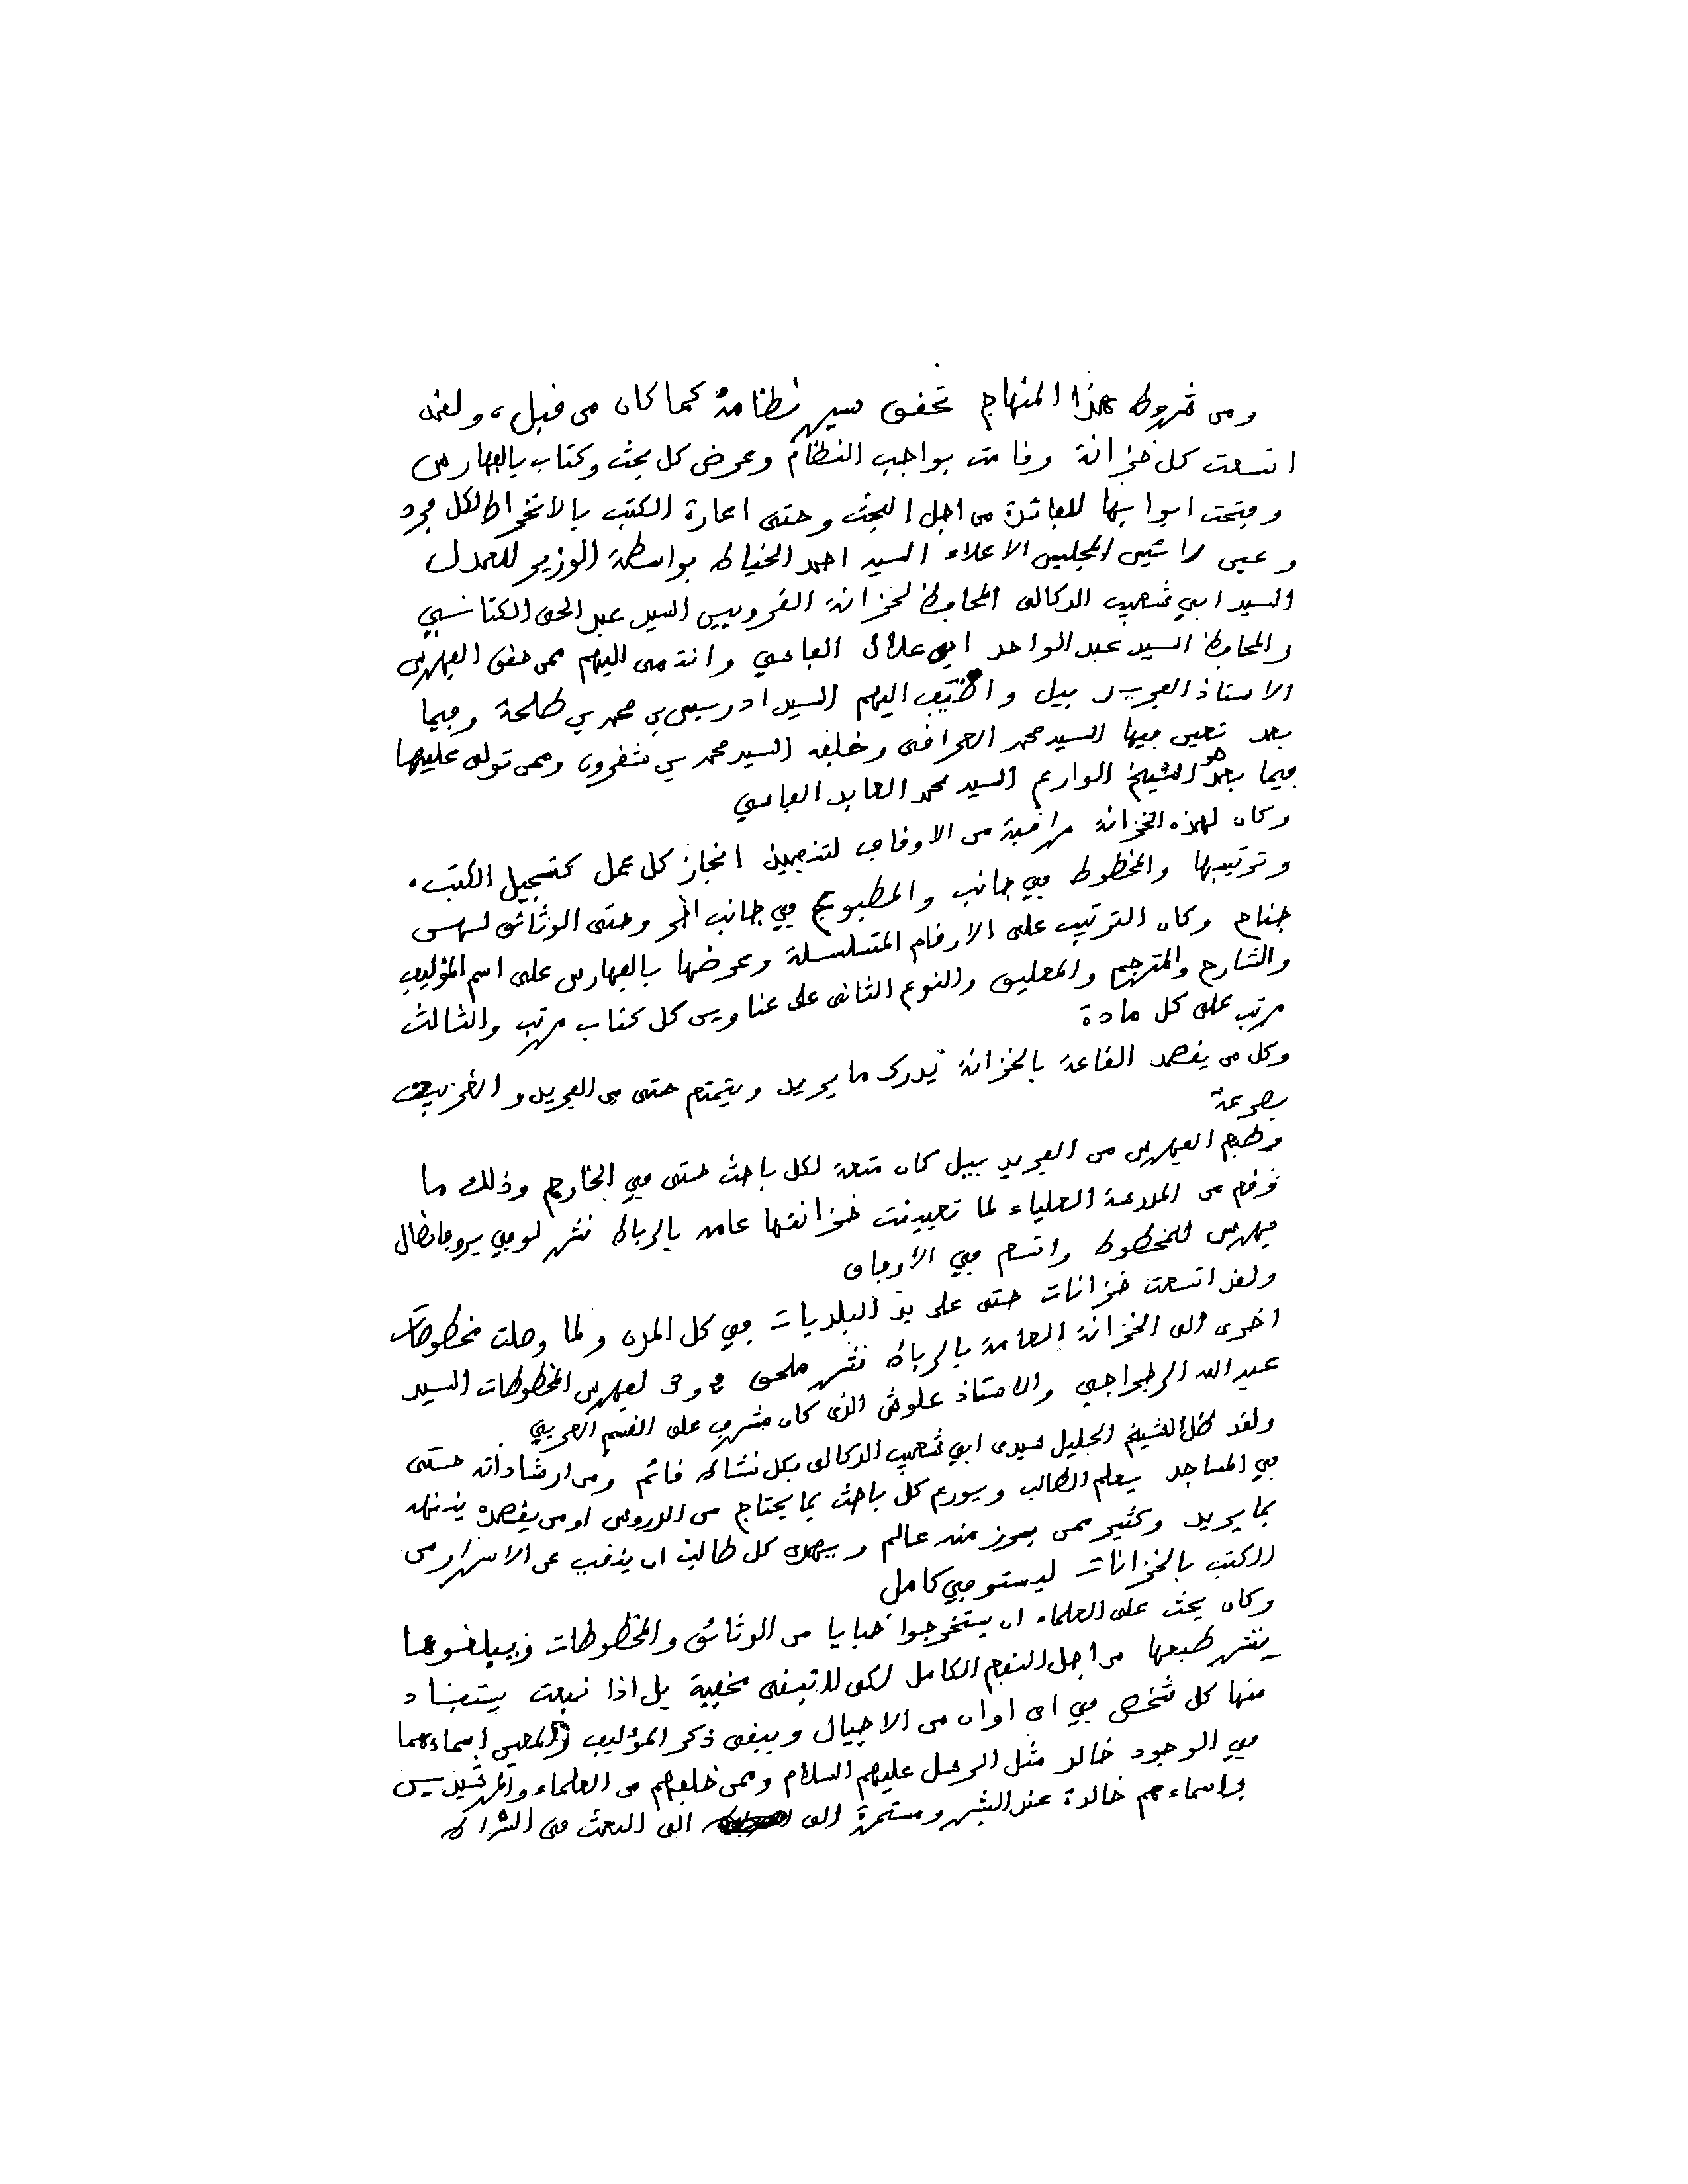 ومن شروط هذا المنهاج تحقق سير نظامة كما كان من قبل، ولقد
اتسعت كل خزانة وقامت بواجب النظام وعرض كل بحث وكتاب بالفهارس
وفتحت ابوابها للفائدة من اجل البحث وحتى اعارة الكتب بالانخراط لكل فرد
وعين رائيس المجلس الاعلاء السيد احمد الخياط بواسطة الوزير للعدل
السيد ابي شعيب الدكالى المحافظ لخزانة القرويين السيد عبد الحى الكتاني
والمحافظ السيد عبد الواحد ابن علال الفاسي وانتمى اليهم ممن حقق الفهرس
الاستاذ الفريد بيل واضيف اليهم السيد ادريس بن محمد بن طلحة وفيما
بعد تعين فيها السيد محمد العراقى وخلفه السيد محمد بن شقرون وممن تولى عليها
فيما بعد هو الشيخ الوارع السيد محمد العابد الفاسي
وكان لهذه الخزانة مراقبة من الاوقاف لتنفيذ انجاز كل عمل كتسجيل الكتب.
وترتيبها والمخطوط في جانب والمطبوع في جانب اخر وحتى الوثائق
جناح وكان الترتيب على الارقام المتسلسلة وعرضها بالفهارس على اسم المؤليف
والشارح والمترجم والمعليق والنوع الثانى على عناوين كل كتاب مرتب والثالث
مرتب على كل مادة
وكل من يقصد القاعة بالخزانة يدرك ما يريد ويتمتع حتى من الفريد و
بصرعة
وطبع الفهرس من الفريد بيل كان متعة لكل باحث حتى في الخارج وذلك ما
من العلياء لما تعيينت خزانتها عامه بالرباط نشر لوفي بروفانصال
فهرس للمخطوط واتسع في الافاق
ولقد اتسعت خزانات حتى على يد البلديات في كل المدن ولما وصلت مخطوطات
اخرى الى الخزانة العامة بالرباط نشر ملحق 2 و 3 لفهرس المخطوطات السيد
عبد الله الرجراجي والاستاذ علوش الذى كان مشرف على القسم العربي
ولقد ظل الشيخ الجليل سيدى ابي شعيب الدكالى بكل نشاط قائم ومن ارشاداته حتى
في المساجد يعلم الطالب ويورع كل باحث بما يحتاج من الدروس او من يقصده
بما يريد وكثير ممن يبرز منه عالم كل طالب ان ينقب عن الاسرار من
الكتب بالخزانات ليستوفي كامل
وكان يحث على العلماء ان يستخرجوا خبايا من الوثائق والمخطوطات
ينشر طبعها من اجل النفع الكامل لكى لا تبقى مخفية بل اذا نبعت يستفاد
منها كل شخص في اى اوان من الاجيال ويبقى ذكر المؤليف والمعين اسماءهما
في الوجود خالد مثل الرسل عليهم السلام وممن خلفهم من العلماء والمرشيدين
باسماءهم خالدة عند البشر ومستمرة الى الى البعث من